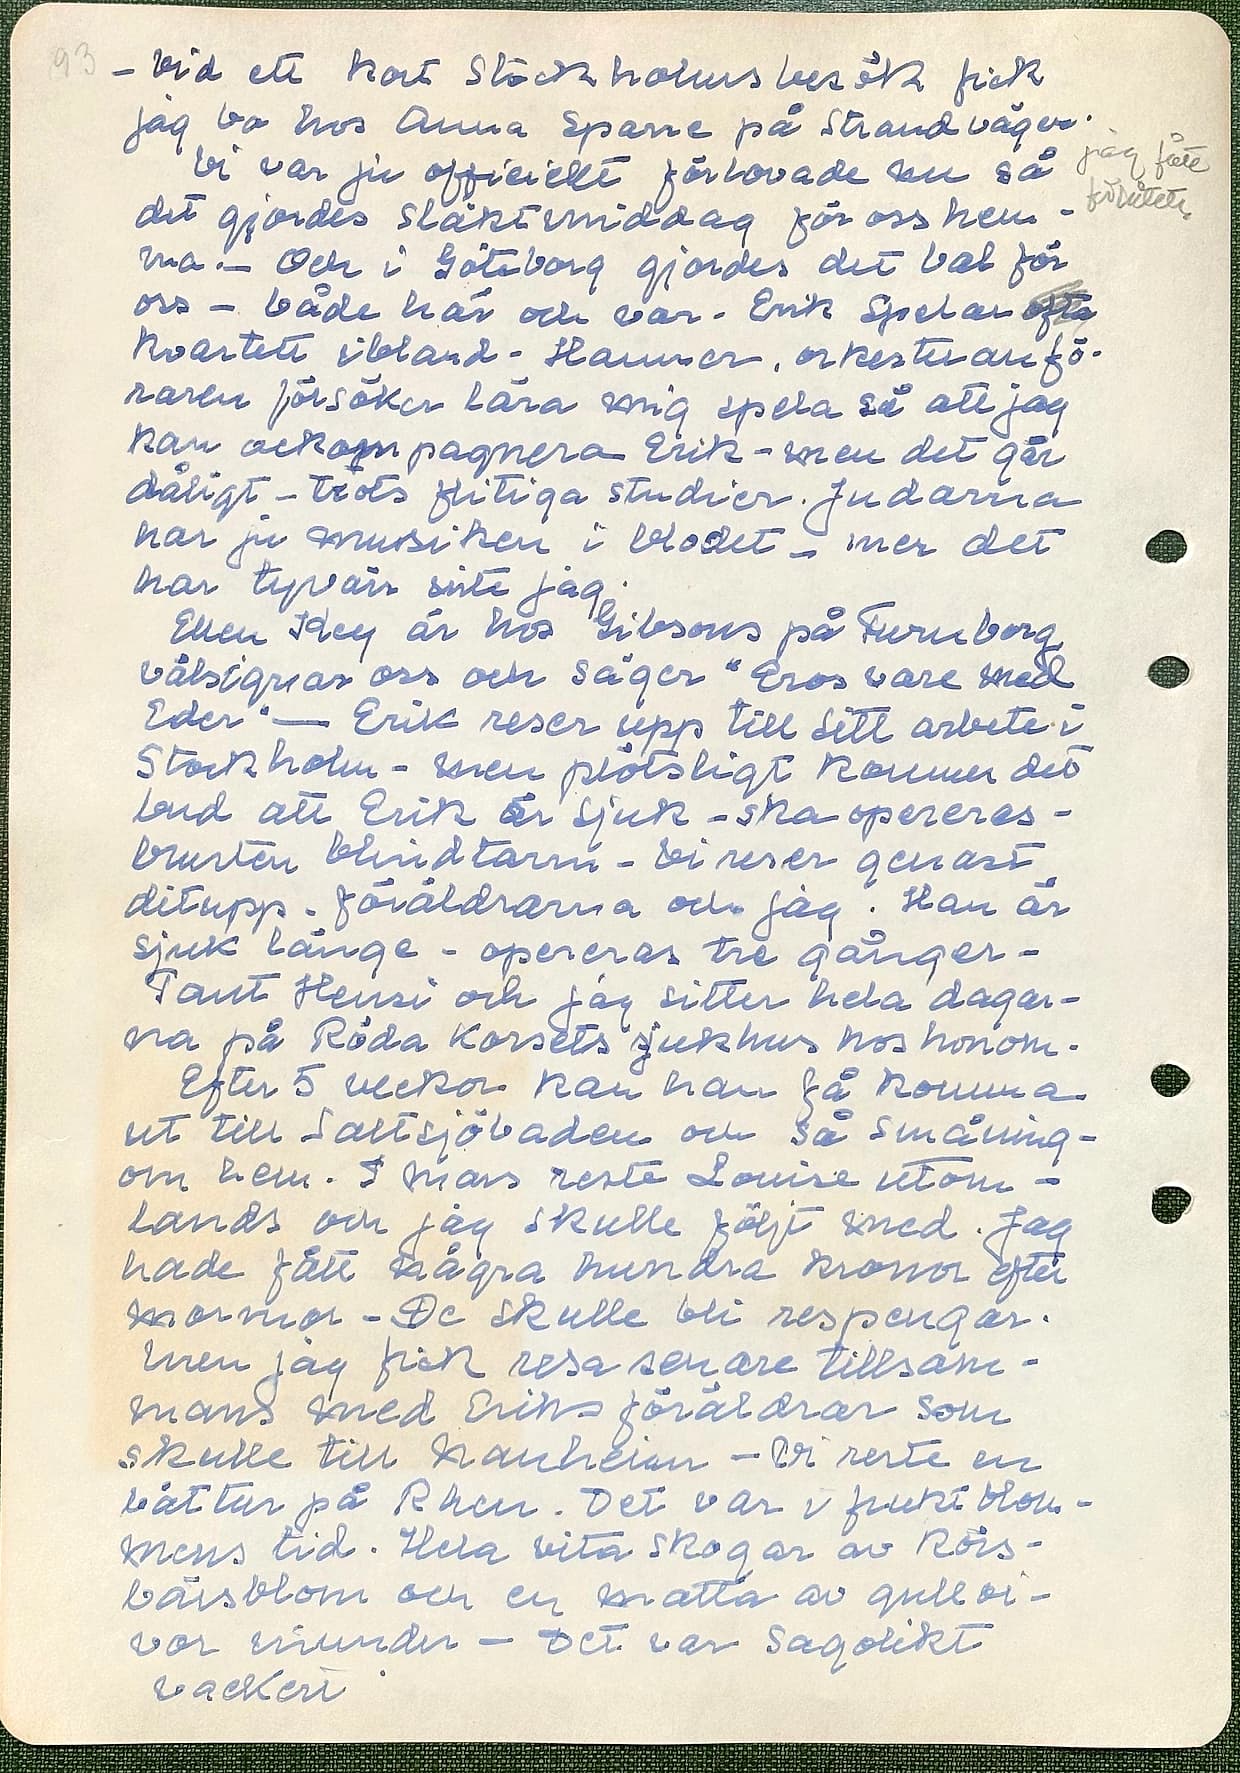 93
- Vid ett kort Stockholmsbesök fick
jag bo hos Anna Sparre på Strandvägen.
Vi var ju officiellt förlovade nu så
det gjordes släktmiddag för oss hem-
ma. - Och i Göteborg gjordes det bal för
oss - både här och var - Erik spelar ofta
kvartett ibland - Hammer, orkesteranfö-
raren försöker lära mig spela så att jag
kan ackompagnera Erik - men det går
dåligt - trots flitiga studier. Judarna
har ju musiken i blodet - mer det
har tyvärr inte jag.
Ellen Key är hos Gibsons på Furuborg
välsignar oss och säger "Eros vare med
Eder" — Erik reser upp till sitt arbete i
Stockholm - men plötsligt kommer det
bud att Erik är sjuk - ska opereras -
brusten blindtarm - Vi reser genast
ditupp - föräldrarna och jag. Han är
sjuk länge - opereras tre gånger -
Tant Hensi och jag sitter hela dagar-
na på Röda Korsets sjukhus hos honom.
Efter 5 veckor kan han få komma
ut till Saltsjöbaden och så småning-
om hem. I mars reste Louise utom-
lands och jag skulle följt med. Jag
hade fått några hundra kronor efter
mormor - De skulle bli respengar.
Men jag fick resa senare tillsam-
mans med Eriks föräldrar som
skulle till Nauheim - Vi reste en
båttur på Rhen. Det var i fruktblom-
mens tid. Hela vita skogar av körs-
bärsblom och en matta av gullvi-
vor inunder - Det var sagolikt
vackert.
jag fäte